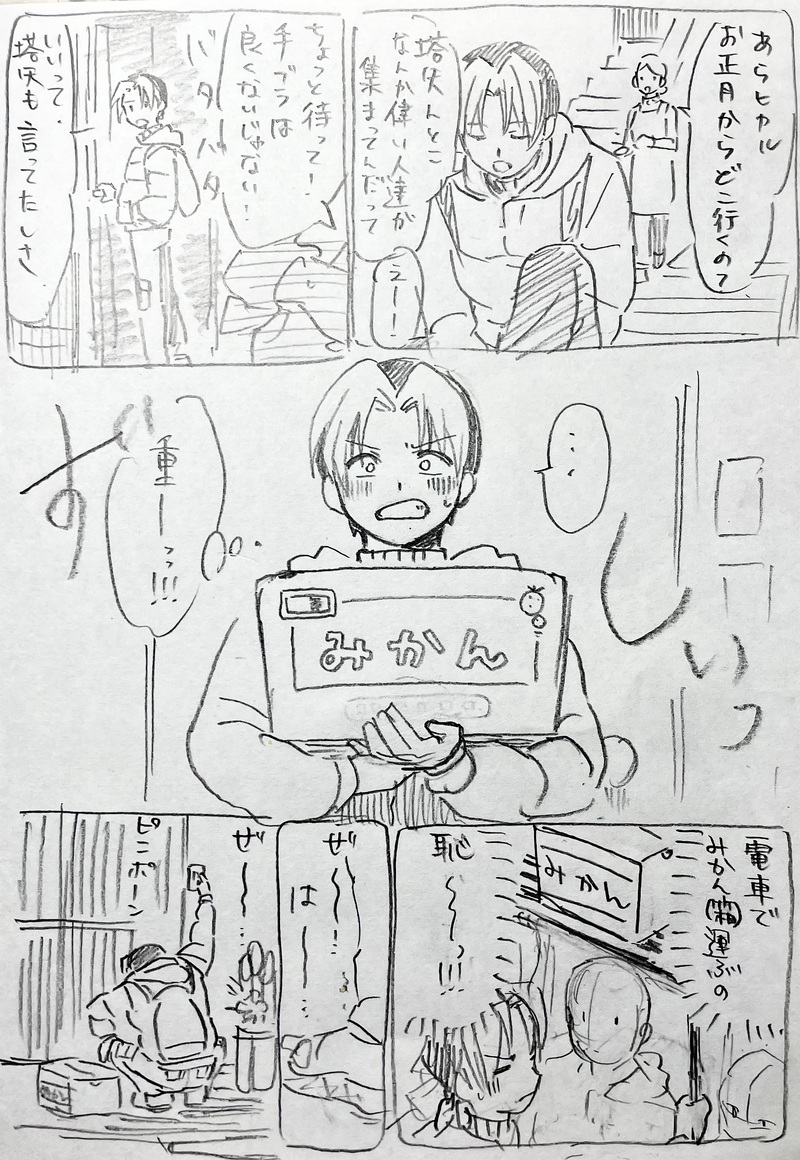 あらヒカル
お正月からどこ行くの？
塔矢んとこ
なんか偉い人達が
集まってんだって
えー！
ちょっと待って！
手ブラは
良くないじゃない！
バタバタ
いいって、
塔矢も言ってたしさ
…
しいっ
みかん
重ーっっ!!!
ずの
電車で
みかん箱運ぶの
みかん
恥〜〜っ!!!
ぜ〜〜…
は〜…
ぜ〜〜…
ピンポーン